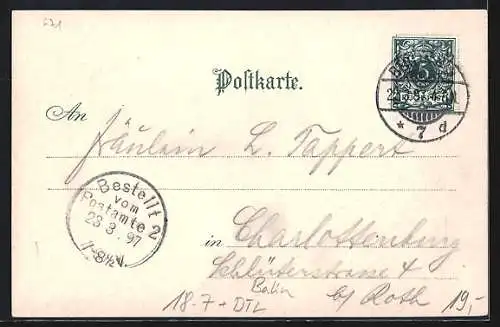 621
5
BERLIN
22.3.97. 4-5N
* 7 d
Postkarte.
An
Fräulein L. Tappert
Bestellt 2
vom
Postamte
23.3.97
7-8½V.
in Charlottenburg
Schlüterstrasse 4
b/ Roth
18.7 + DTL
19,-